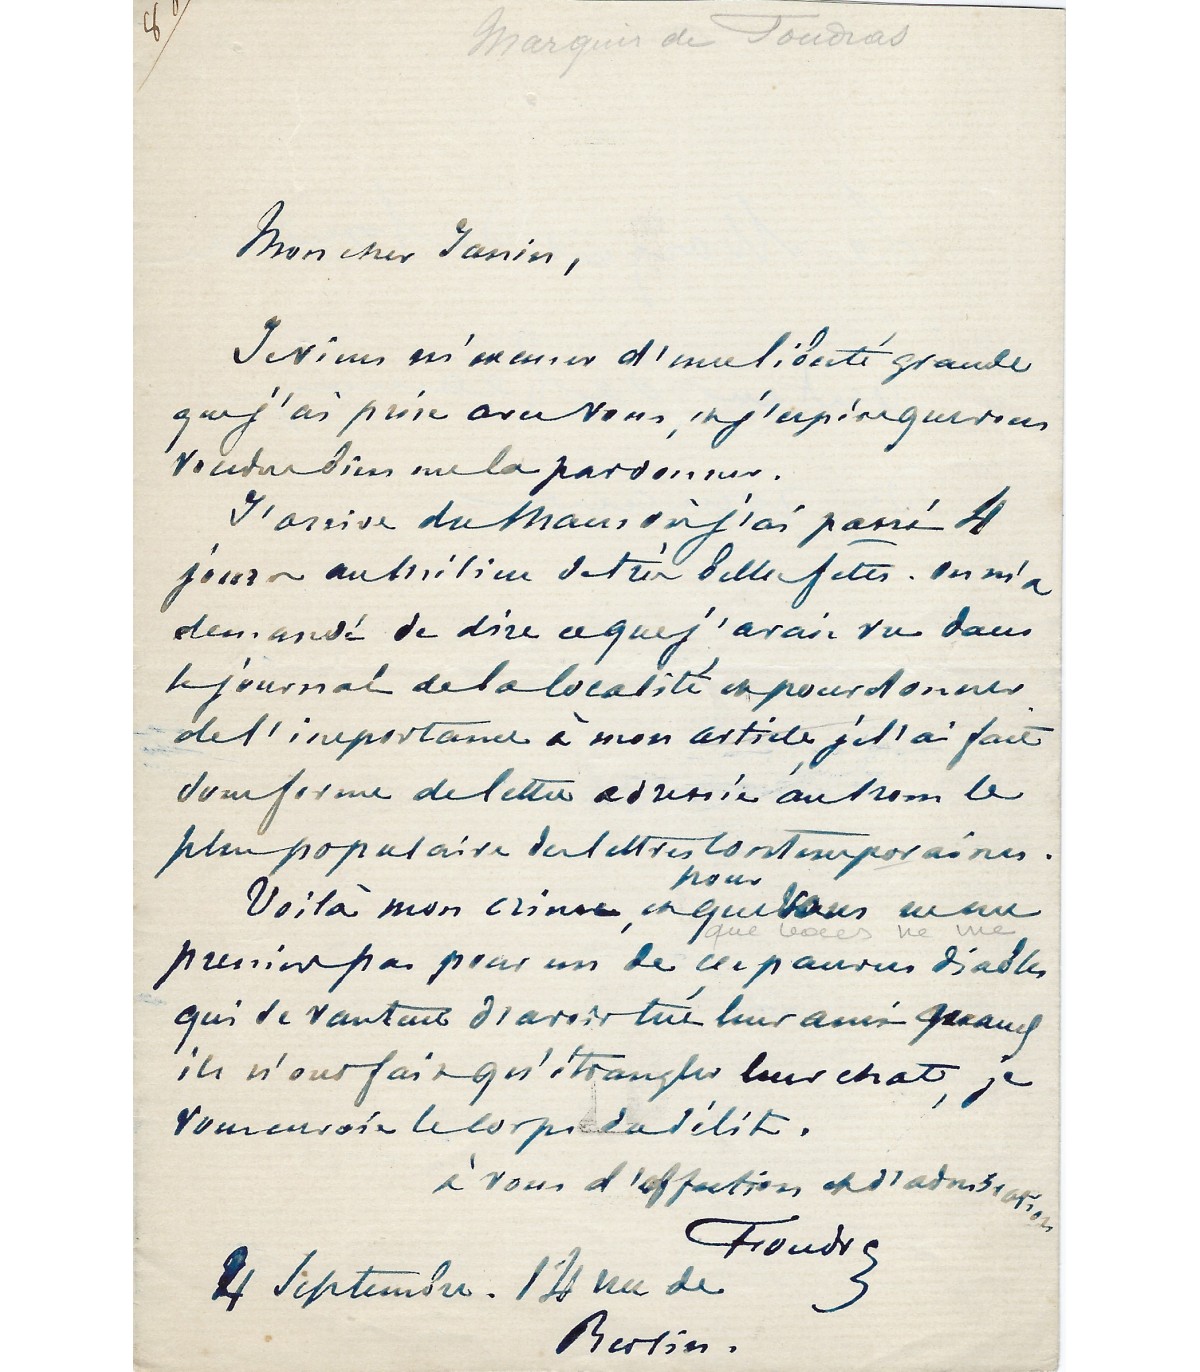 8
Marquis de Foudras
Mon cher Janin,
Je viens m'excuser d'une liberté grande
que j'ai prise avec vous, et j'espère que vous
voudrez bien me la pardonner.
J'arrive du Mans où j'ai passé 4
jours au milieu de très belles fêtes. On m'a
demandé de dire ce que j'avais vu dans
le journal de la localité et pour donner
de l'importance à mon article je l'ai fait
sous forme de lettre adressée au nom le
plus populaire des lettres contemporaines.
Voilà mon crime, et pour que vous ne me
que vous ne me
preniez pas pour un de ces pauvres diables
qui se vantent d'avoir tué leur ami quand
ils n'ont fait qu'étrangler leur chat, je
vous envoie le corps du délit.
à vous d'affection et d'admiration
Foudras
4 Septembre. 14 rue de
Berlin.